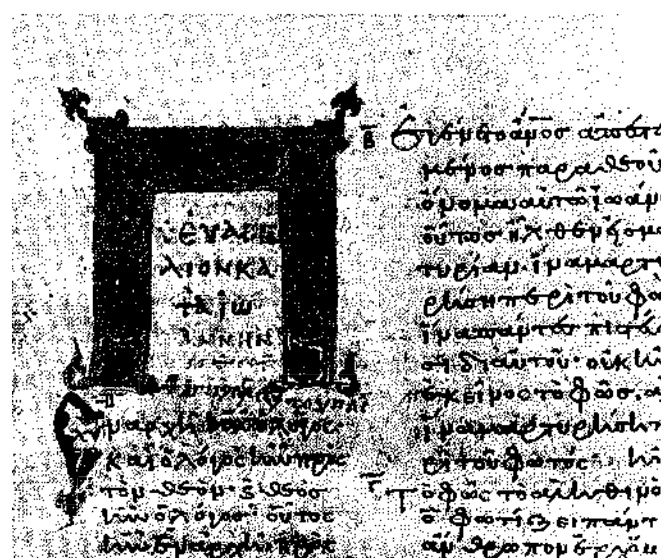 ΕΥΑΓΓΕ
ΛΙΟΝ ΚΑ
ΤΑ ΙΩ
ΑΝΝΗΝ
ἐν ἀρχῇ ἦν ὁ λόγος
καὶ ὁ λόγος ἦν πρὸς
τὸν θεόν· καὶ θεὸς
ἦν ὁ λόγος· οὗτος
ἦν ἐν ἀρχῇ πρὸς
β Ἐγένετο ἄνος ἀπεστα
μένος παρὰ θεοῦ
ὄνομα αὐτῷ ἰωάν
οὗτος ἦλθεν εἰς μα
τυρίαν· ἵνα μαρτυ
ρήσῃ περὶ τοῦ φω
ἵνα πάντες πιστε
σι δι αὐτοῦ· οὐκ ἦν
ἐκεῖνος τὸ φῶς. ἀ
ἵνα μαρτυρήσῃ
ρὶ τοῦ φωτός· ἦν
γ τὸ φῶς τὸ ἀληθινὸ
ὃ φωτίζει πάντ
ἄνθρωπον ἐρχόμ